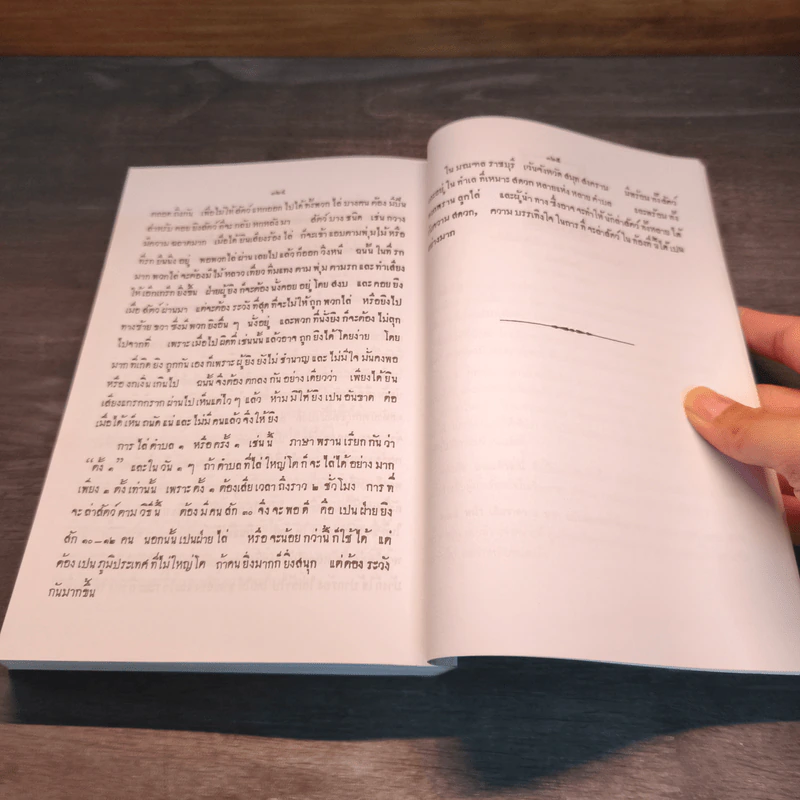 ตลอด ถึงกัน เพื่อไม่ให้สัตว์แหกออกไปได้ ทั้งพวกไล่ บางคนต้องมีปืน
สำหรับ คอย ยิงสัตว์ที่จะกลับหกหลังมา สัตว์บางชนิด เช่น กวาง
มีความฉลาดมาก เมื่อได้ยินเสียงร้องไล่ ก็จะเข้าแอบตามพุ่มไม้หรือ
ที่รก ยืนนิ่งอยู่ พอพวกไล่ผ่านเลยไปแล้วก็ออกวิ่งหนี ฉนั้นในที่รก
มาก พวกไล่จะต้องมีไม้หลาวเที่ยวทิ่มแทงตามพุ่มตามรกและทำเสียง
ให้เอิกเกริกยิ่งขึ้น ฝ่ายผู้ยิงก็จะต้องนั่งคอยอยู่โดยสงบ และคอยยิง
เมื่อสัตว์ผ่านมา แต่จะต้องระวังที่สุดที่จะไม่ให้ถูกพวกไล่ หรือยิงไป
ทางซ้ายขวา ซึ่งมีพวกยิงอื่น ๆ นั่งอยู่ และพวกที่นั่งยิงก็จะต้องไม่ลุก
ไปจากที่ เพราะเมื่อไปผิดที่เช่นนั้นแล้วอาจถูกยิงได้โดยง่าย โดย
มากที่เกิดยิงถูกกันเองก็เพราะผู้ยิงยังไม่ชำนาญและไม่มีใจมั่นคงพอ
หรืองกเงิ่นเกินไป ฉนั้นจึงต้องตกลงกันอย่างเดียวว่า เพียงได้ยิน
เสียงแกรกกรากผ่านไปเห็นแต่ไวๆ แล้ว ห้ามมิให้ยิงเป็นอันขาด ต่อ
เมื่อได้เห็นถนัดแน่และไม่มีคนแล้วจึงให้ยิง
การไล่ตำบล ๑ หรือครั้ง ๑ เช่นนี้ ภาษาพรานเรียกกันว่า
“ตั้ง ๑” และในวัน ๑ ๆ ถ้าตำบลที่ไล่ใหญ่โตก็จะไล่ได้อย่างมาก
เพียง ๑ ตั้งเท่านั้น เพราะตั้ง ๑ ต้องเสียเวลาถึงราว ๒ ชั่วโมง การที่
จะล่าสัตว์ตามวิธีนี้ ต้องมีคนสัก ๓๐ จึงจะพอดี คือเป็นฝ่ายยิง
สัก ๑๐–๑๒ คน นอกนั้นเป็นฝ่ายไล่ หรือจะน้อยกว่านี้ก็ใช้ได้ แต่
ต้องเป็นภูมิประเทศที่ไม่ใหญ่โต ถ้าคนยิ่งมากก็ยิ่งสนุก แต่ต้องระวัง
กันมากขึ้น
ในมณฑลราชบุรี เว้นจังหวัดสมุทสงคราม มีพร้อมทั้งสัตว์
อยู่ในทำเลที่เหมาะสดวกหลายแห่งหลายตำบล และพร้อมทั้ง
พรานลูกไล่ และผู้นำทางซึ่งอาจจะทำให้นักล่าสัตว์ทั้งหลายได้
ความสดวก, ความบรรเทิงใจในการที่จะล่าสัตว์ในท้องที่นี้ได้เป็น
อย่างมาก